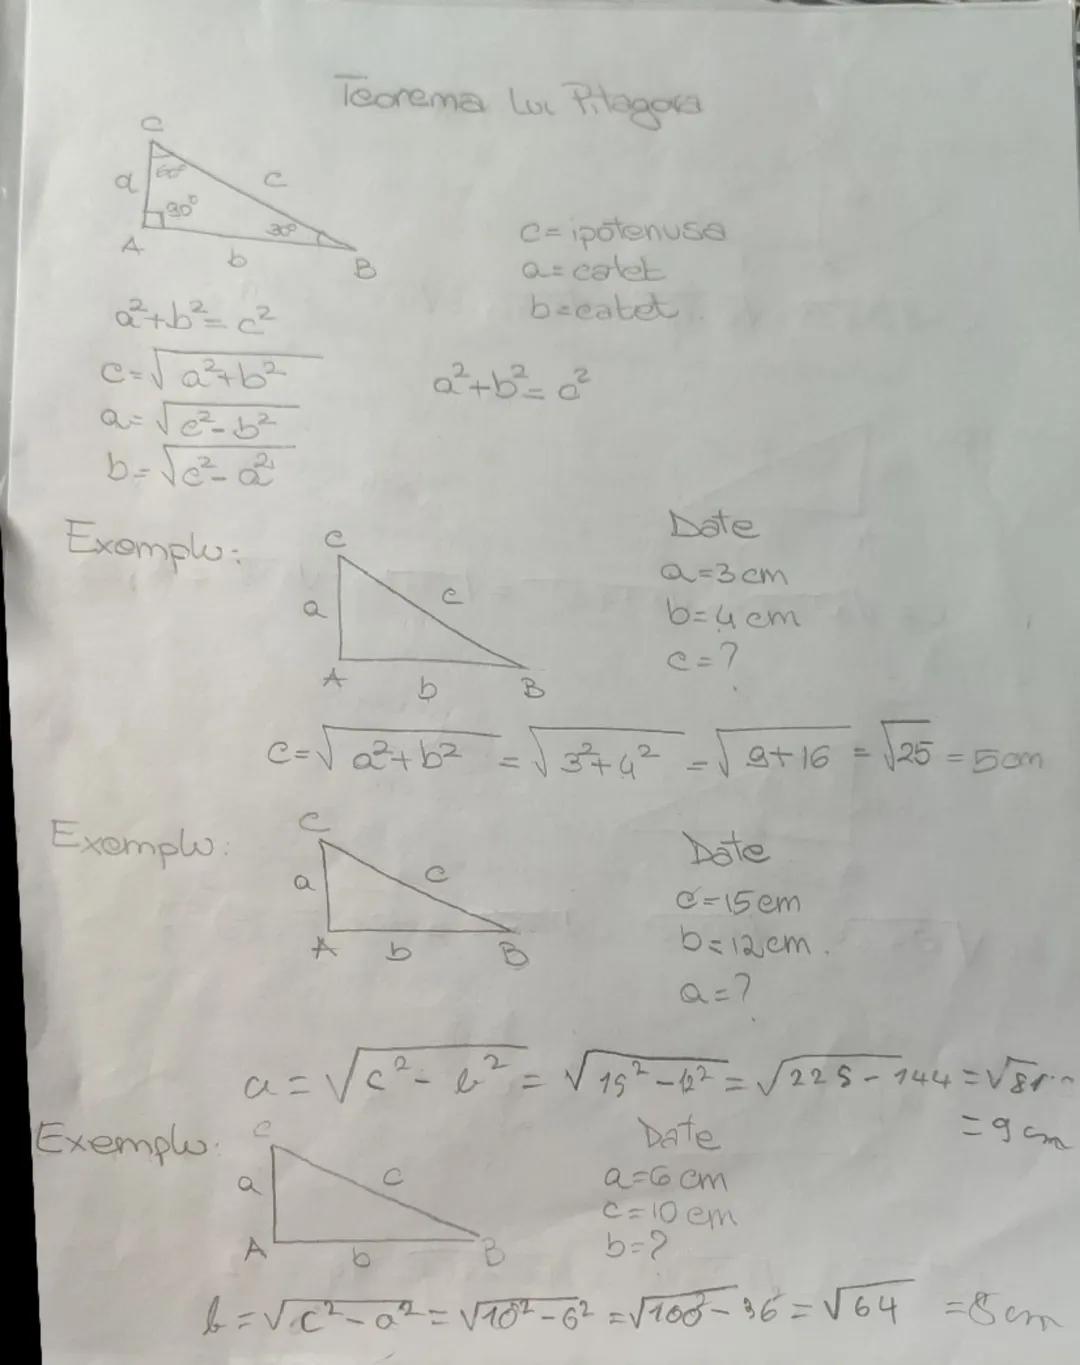 Teorema lui Pitagora
C
a 60° c
90° 30°
A b B
c = ipotenusa
a = catet
b = catet
a²+b² = c²
c = √a²+b²
a²+b² = c²
a = √c²-b²
b = √c²-a²
Exemplu:
C
a c
A b B
Date
a = 3 cm
b = 4 cm
c = ?
c = √a²+b² = √3²+4² = √9+16 = √25 = 5 cm
Exemplu:
C
a c
A b B
Date
c = 15 cm
b = 12 cm.
a = ?
a = √c²-b² = √15²-12² = √225-144 = √81 = 9 cm
Exemplu:
C
a c
A b B
Date
a = 6 cm
c = 10 cm
b = ?
b = √c²-a² = √10²-6² = √100-36 = √64 = 8 cm